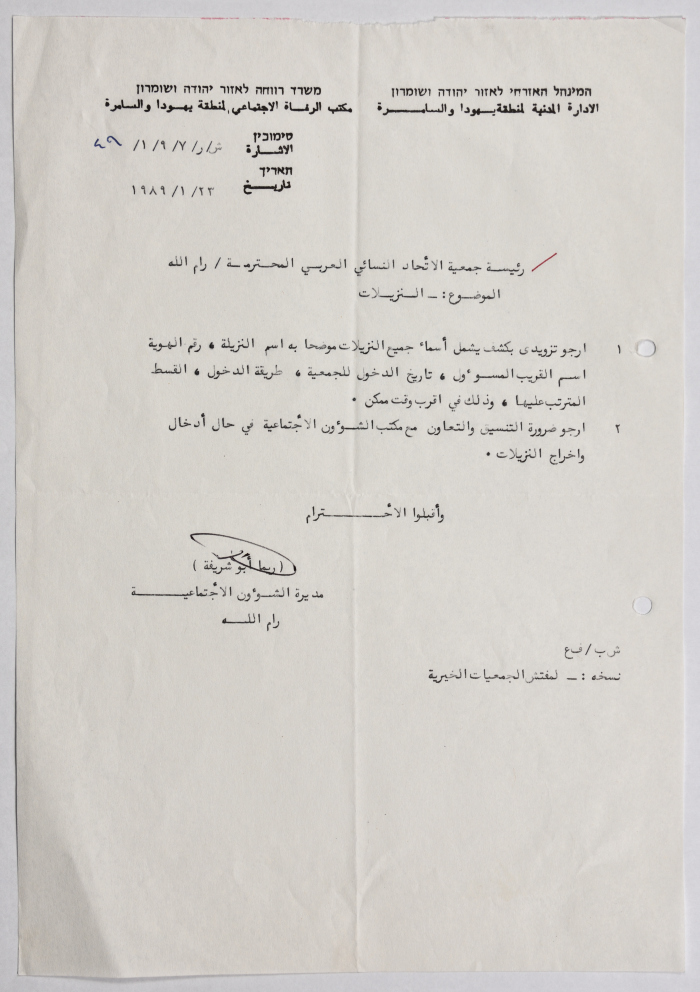 המינהל האזרחי לאזור יהודה ושומרון
الادارة المدنية لمنطقة يهودا والسامـــــرة
משרד רווחה לאזור יהודה ושומרון
مكتب الرفاة الاجتماعي لمنطقة يهودا والسامرة
סימוכין
الاشارة ش/ر/٧/٩/١/
תאריך
تاريــخ ٢٣/١/١٩٨٩
رئيسة جمعية الاتحاد النسائي العربي المحترمة / رام الله
الموضوع :ـ النزيلات
١ ارجو تزويدى بكشف يشمل أسماء جميع النزيلات موضحا به اسم النزيلة ، رقم الهوية
اسم القريب المسوءول ، تاريخ الدخول للجمعية ، طريقة الدخول ، القسط
المترتب عليها ، وذلك في اقرب وقت ممكن .
٢ ارجو ضرورة التنسيق والتعاون مع مكتب الشوءون الأجتماعية في حال أدخال
واخراج النزيلات .
وأقبلوا الأحـــــــترام
( ريما أبو شريفة )
مديرة الشوءون الأجتماعيـــــــة
رام اللـــه
ش.ب/ ف ع
نسخه :ـ لمفتش الجمعيات الخيرية